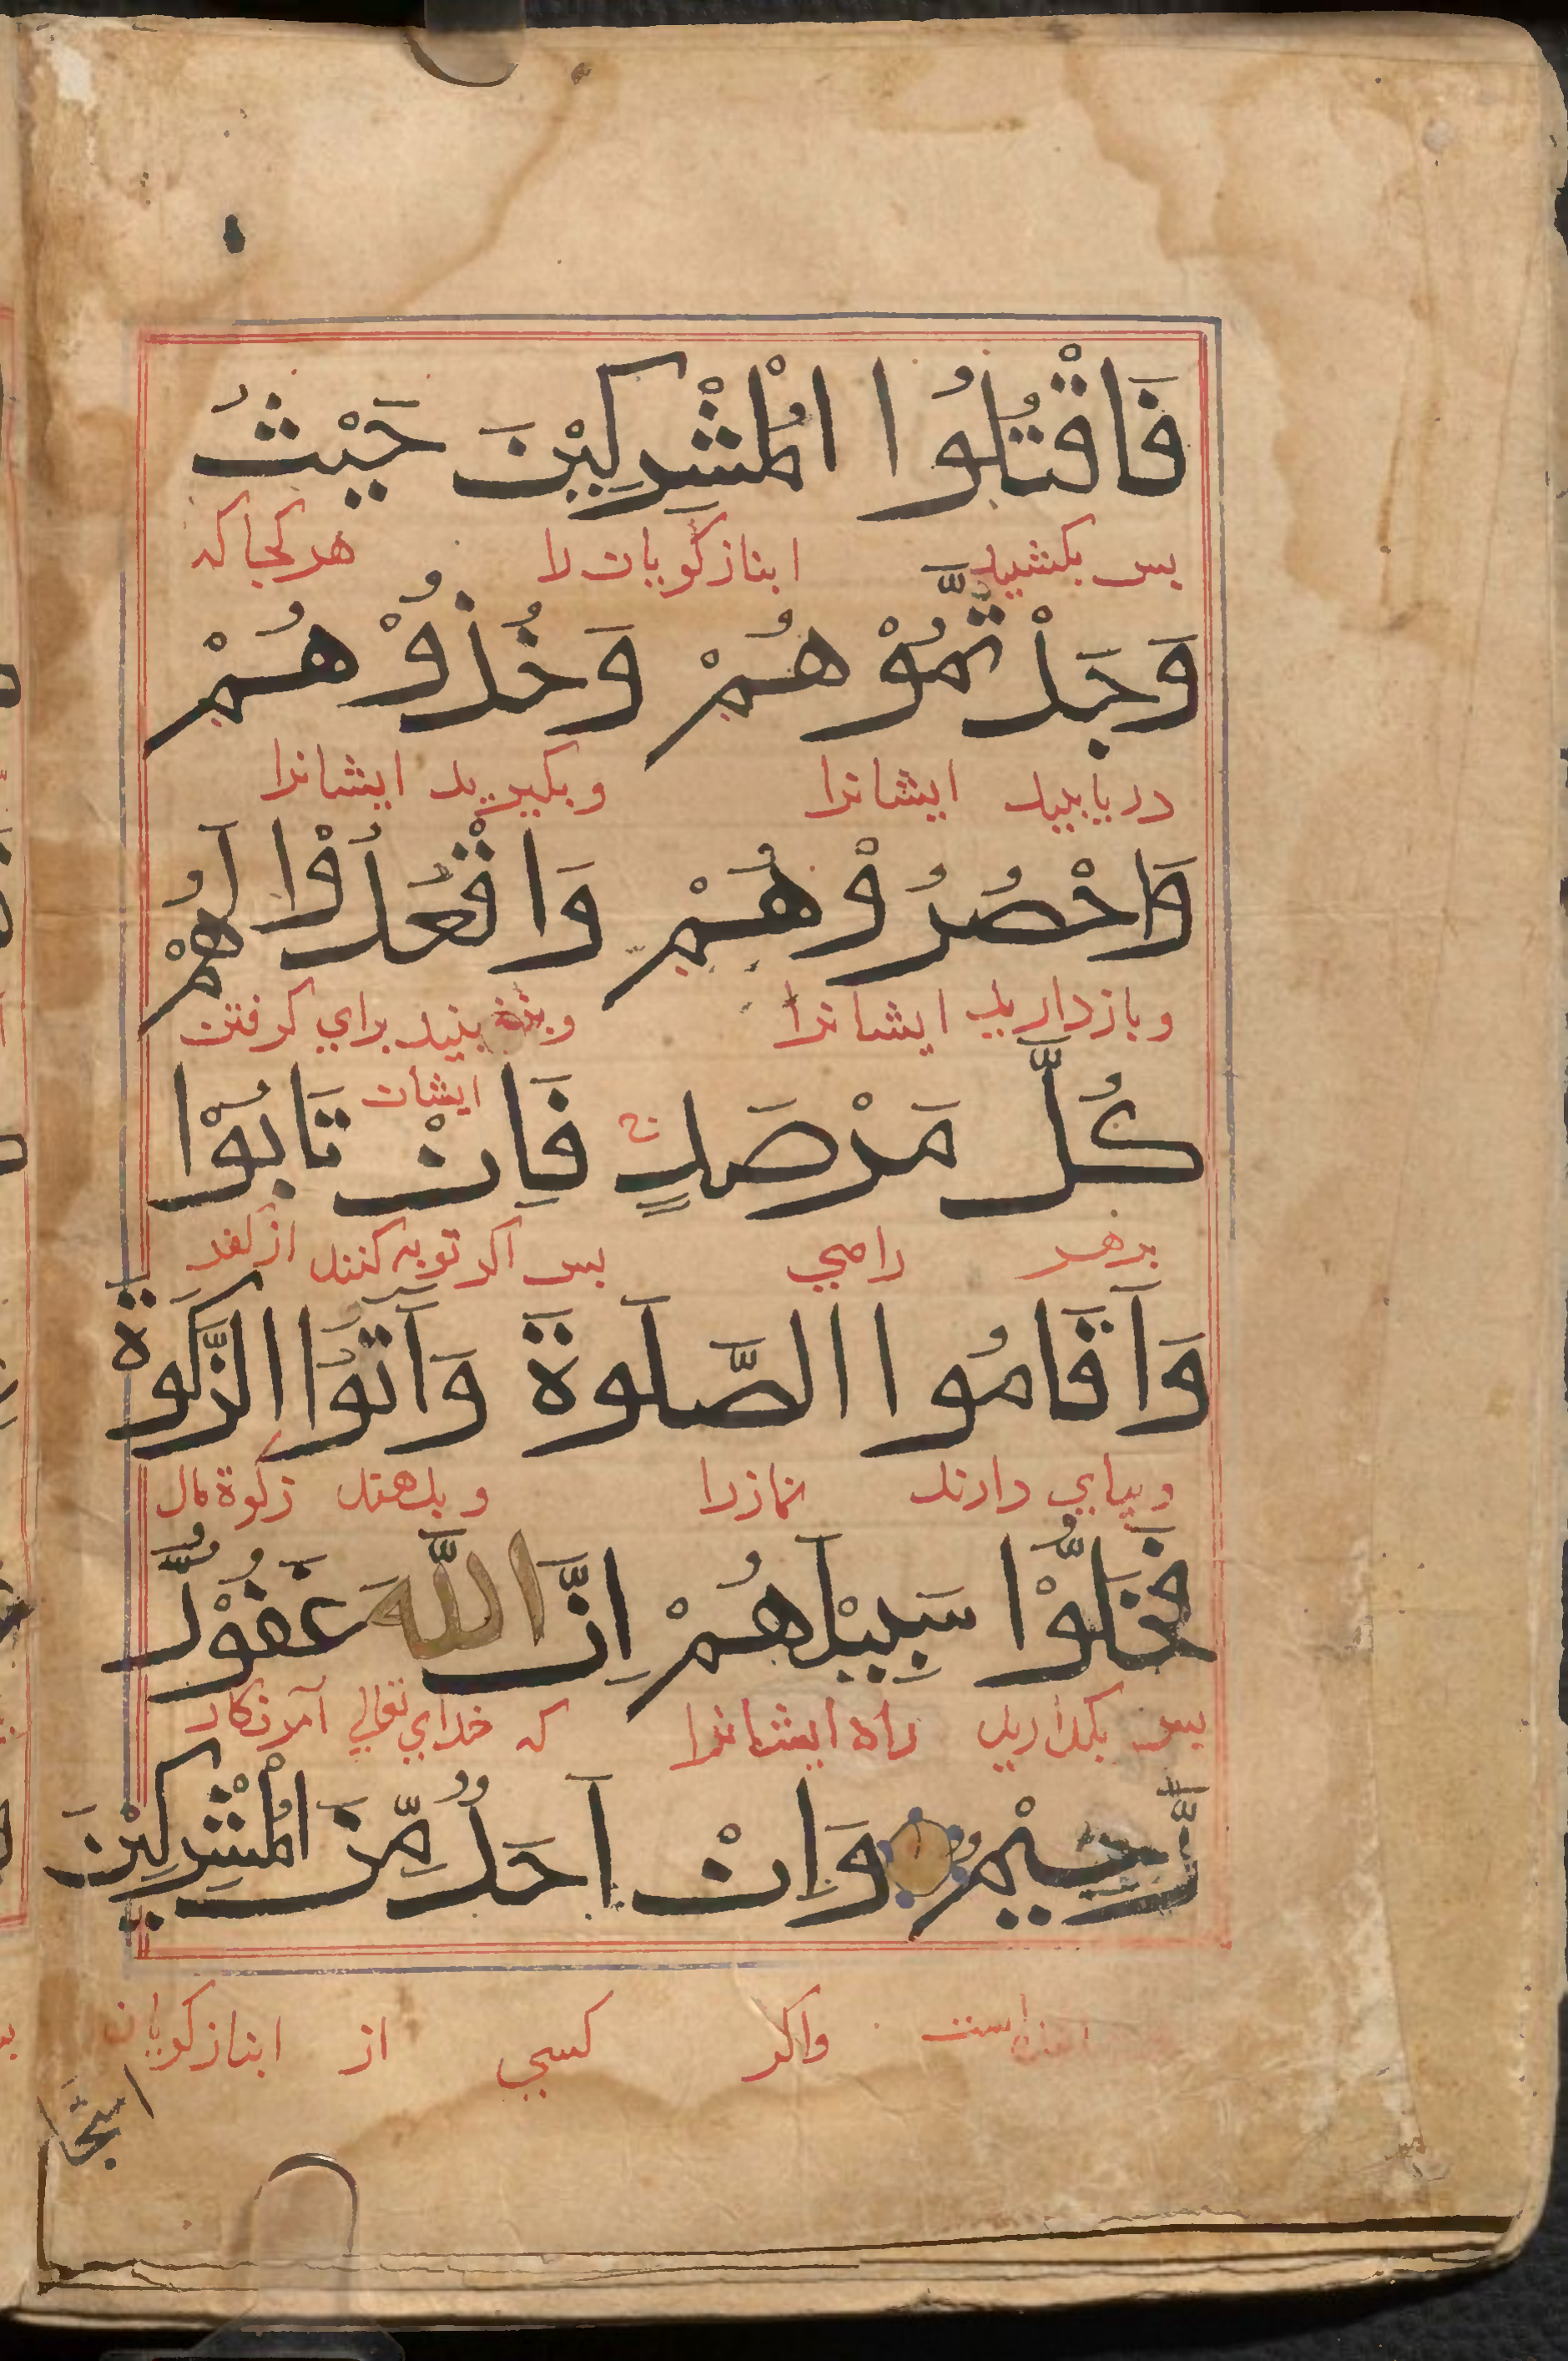 فَاقْتُلُوا الْمُشْرِكِيْنَ حَيْثُ
بس بكشيد انبازكويان را هر كجا كه
وَجَدْتُّمُوْهُمْ وَخُذُوْهُمْ
دريابيد ايشانرا وبكيريد ايشانرا
وَاحْصُرُوْهُمْ وَاقْعُدُوْا لَهُمْ
وبازداريد ايشانرا براي كرفتن
ايشان
كُلَّ مَرْصَدٍ ج فَاِنْ تَابُوْا
برهر راهي بس اكر توبه كنند از كفر
وَاَقَامُوا الصَّلَوةَ وَآتَوُا الزَّكَوةَ
وبپاي دارند نمازرا وبدهند زكوة مال
فَخَلُّوْا سَبِيْلَهُمْ اِنَّ اللَّهَ غَفُوْرٌ
بس بكذاريد راه ايشانرا كه خداي تعالي آمرزكار
رَّحِيْمٌ وَاِنْ اَحَدٌ مِّنَ الْمُشْرِكِيْنَ
است واكر كسي از انبازكويان
اسْتَجَا